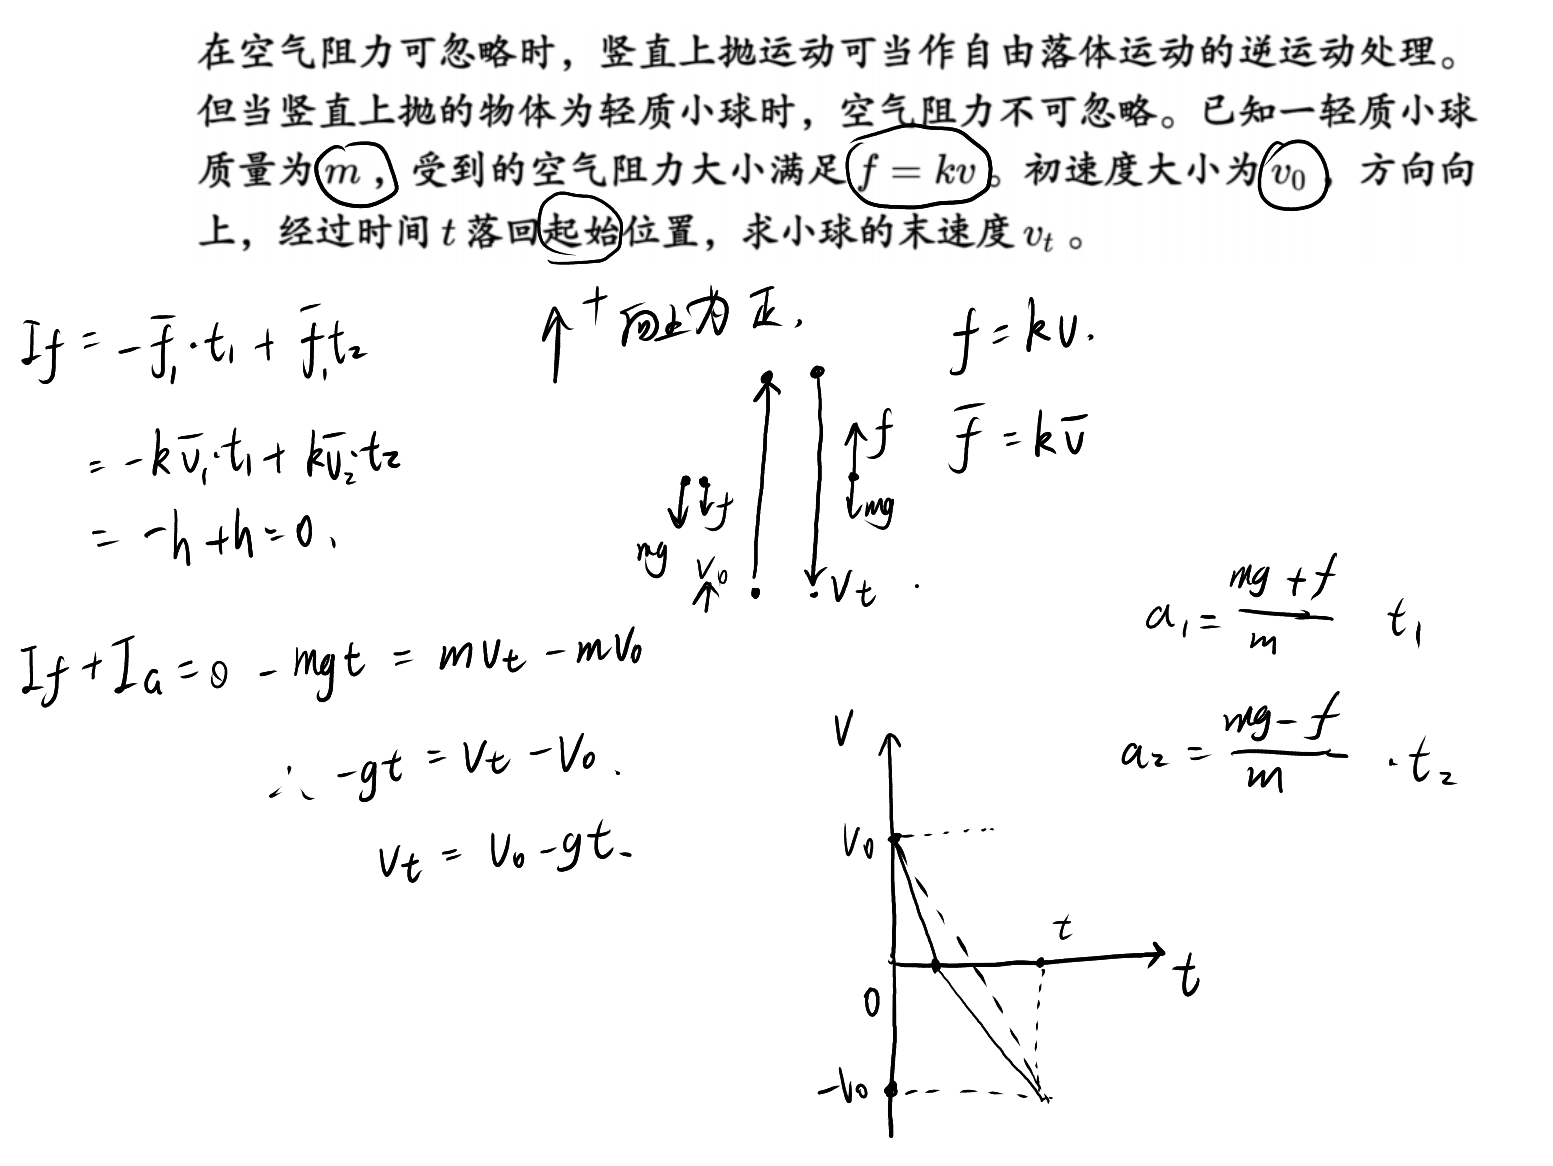 在空气阻力可忽略时，竖直上抛运动可当作自由落体运动的逆运动处理。
但当竖直上抛的物体为轻质小球时，空气阻力不可忽略。已知一轻质小球
质量为 m ，受到的空气阻力大小满足 f = kv 。初速度大小为 v₀ ，方向向
上，经过时间 t 落回起始位置，求小球的末速度 vₜ 。
If = -f̄₁·t₁ + f̄₁t₂
= -kv̄₁·t₁ + kv̄₂·t₂
= -h + h = 0.
If + IG = 0 - mgt = mvt - mv₀
∴ -gt = vt - v₀.
vt = v₀ - gt.
+ 向上为正.
f = kv.
f̄ = kv̄
f
mg
f
mg
v₀
vt
a₁ = (mg + f)/m t₁
a₂ = (mg - f)/m · t₂
V
V₀
t
t
0
-V₀